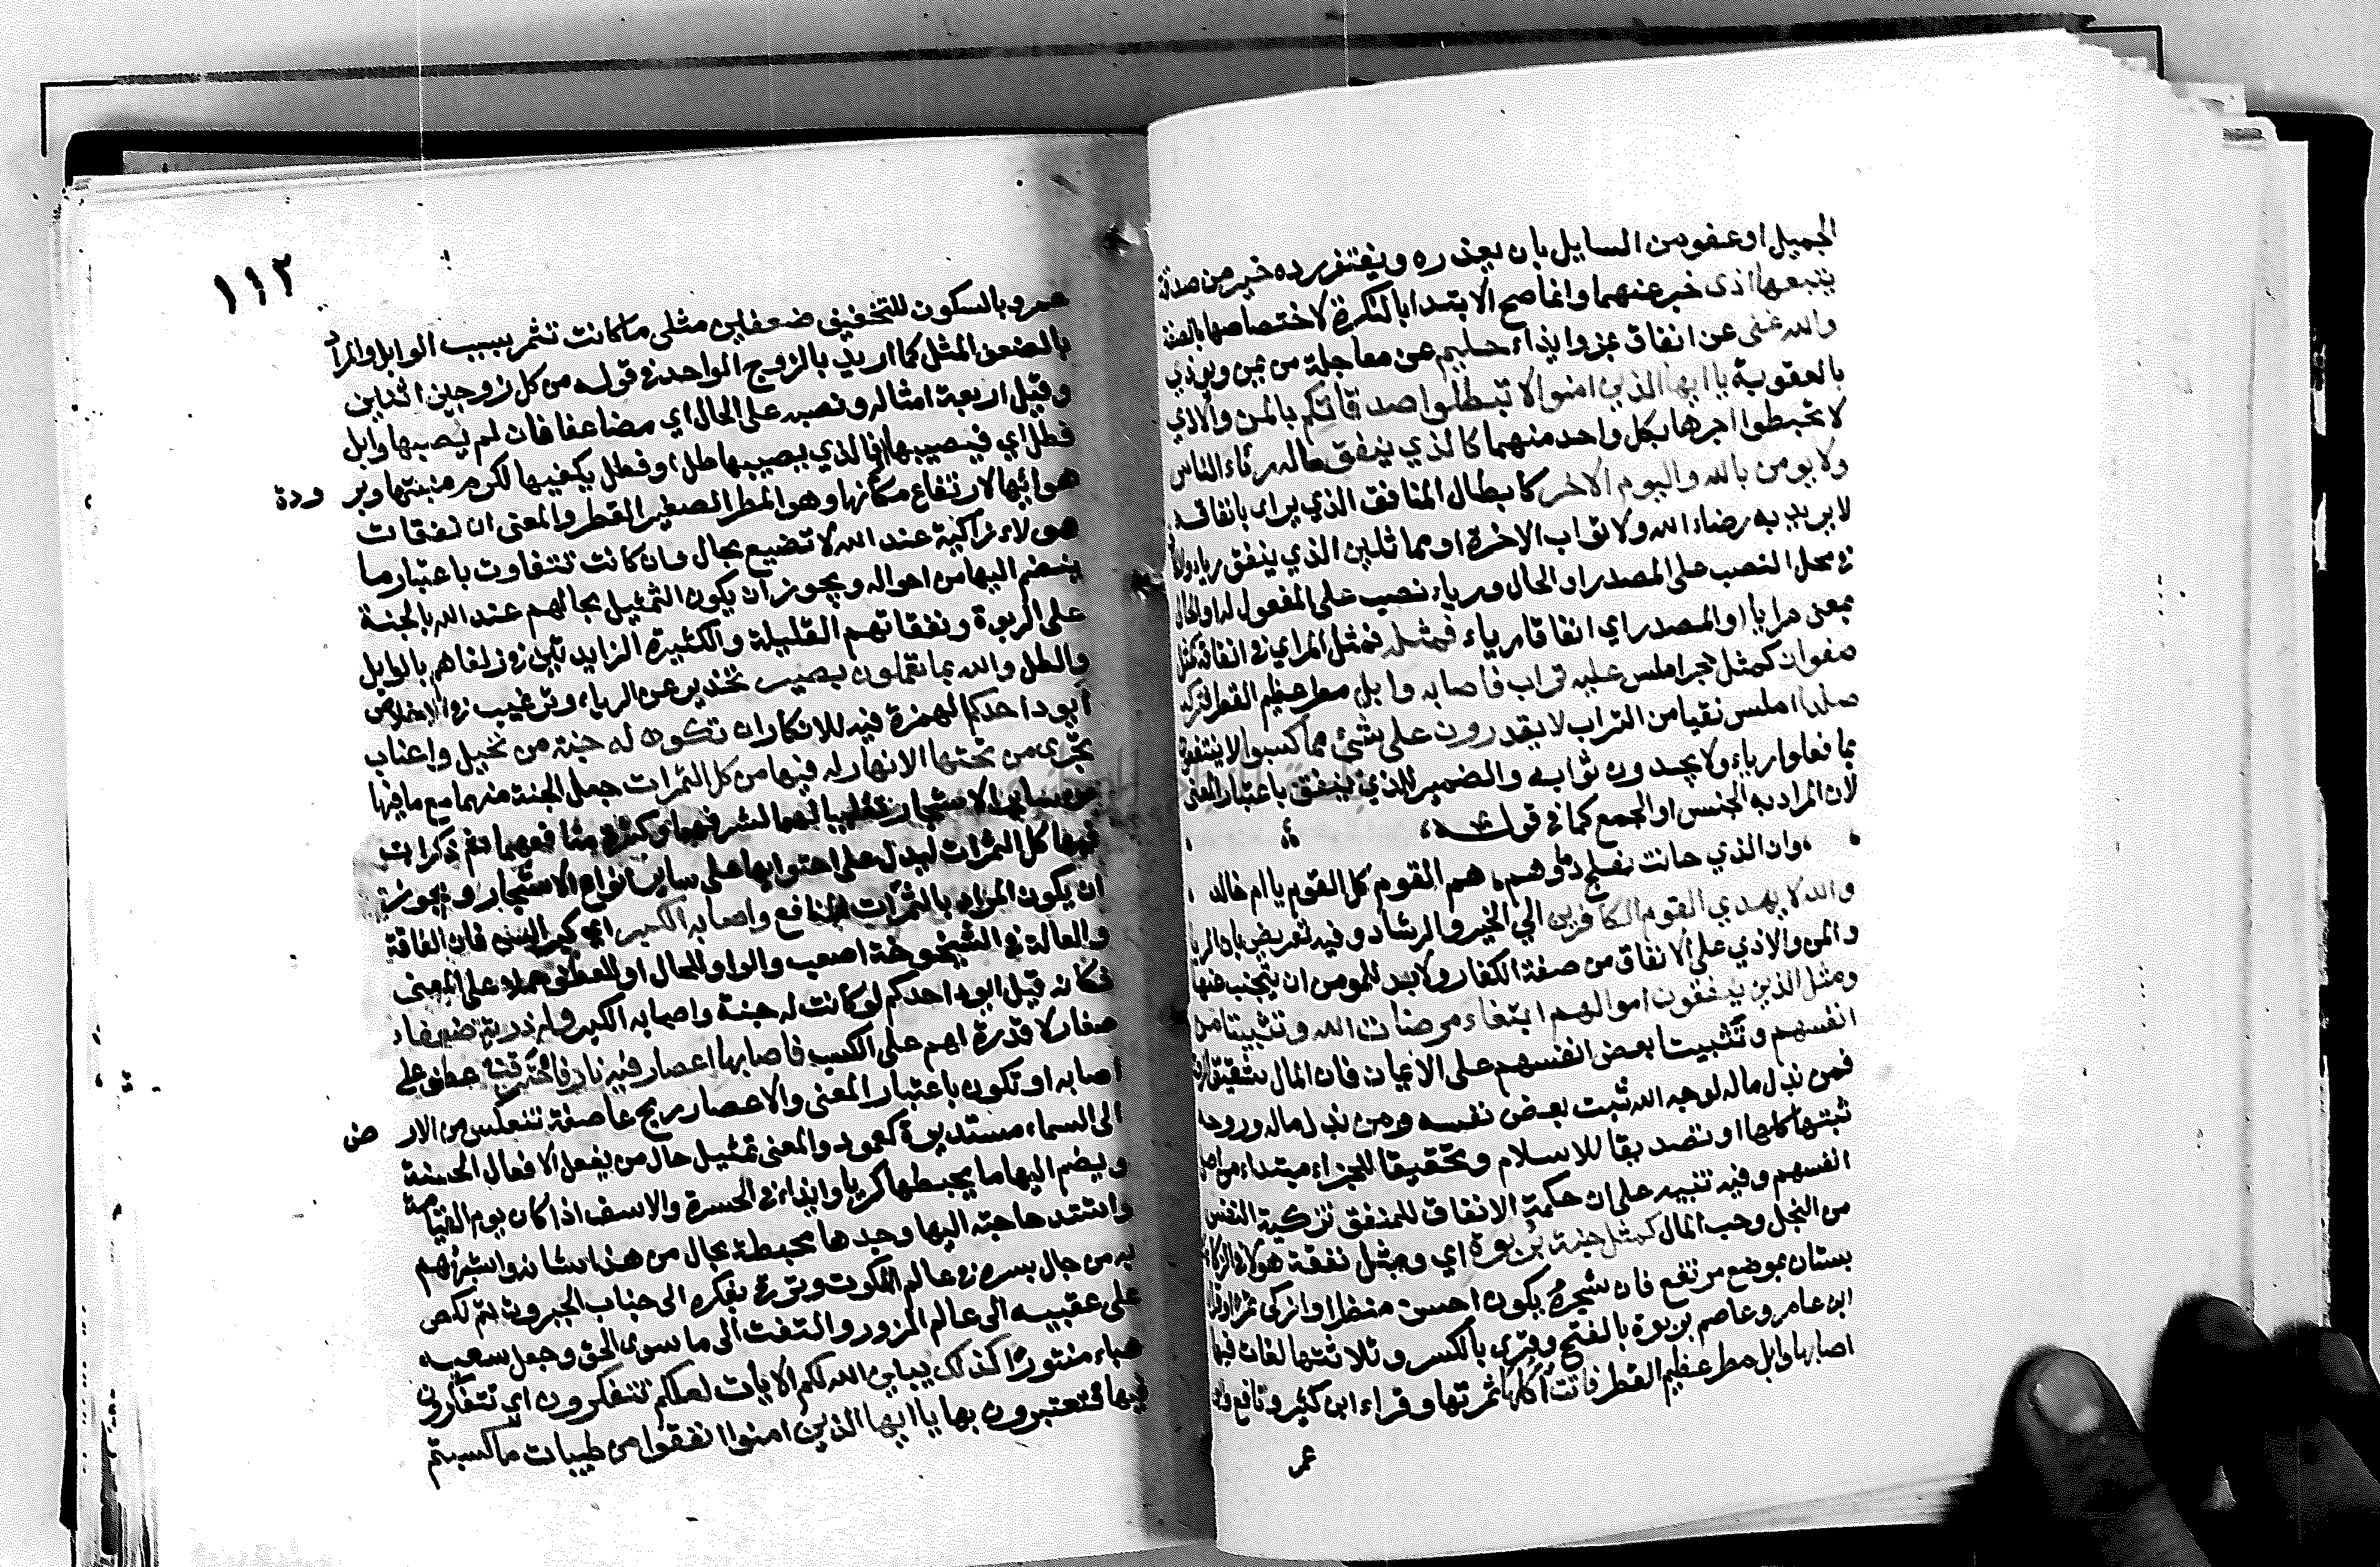 الجميل او عفو من السايل بان يعذره ويغتفر رده خير من صدقة
يتبعها اذى خبر عنهما وانما صح الابتدا بالنكرة لاختصاصها بالصفة
والله غنى عن انفاق بمن وايذاء حليم عن معاجلة من يمن ويوذي
بالعقوبة يا ايها الذين امنوا لا تبطلوا صدقاتكم بالمن والاذي
لا تحبطوا اجرها بكل واحد منهما كالذي ينفق ماله رئاء الناس
ولا يومن بالله واليوم الاخر كابطال المنافق الذي يراى بانفاقه
لا يريد به رضاء الله ولا ثواب الاخرة او مماثلين الذي ينفق رياء
في محل النصب على المصدر او الحال ورياء نصب على المفعول له او الحال
بمعنى مرايا او المصدر اي انفاقا رياء فمثله فمثل المراي في انفاقه كمثل
صفوان كمثل حجر املس عليه تراب فاصابه وابل مطر عظيم القطر فتركه
صلدا املس نقيا من التراب لا يقدرون على شئ مما كسبوا لا ينتفعون
بما فعلوا رياء ولا يجدون ثوابه والضمير للذي ينفق باعتبار المعنى
لان المراد به الجنس او الجمع كما في قوله
وان الذي حانت بفلج دماوهم هم القوم كل القوم يا ام خالد
والله لا يهدي القوم الكافرين الي الخير والرشاد وفيه تعريض بان الريا
والمن والاذي على الانفاق من صفة الكفار ولا بد للمومن ان يتجنب عنها
ومثل الذين ينفقون اموالهم ابتغاء مرضات الله وتثبيتا من
انفسهم وتثبيتا بعض انفسهم على الايمان فان المال شقيق الروح
فمن بذل ماله لوجه الله ثبت بعض نفسه ومن بذل ماله وروحه
ثبتها كلها او تصديقا للاسلام وتحقيقا للجزاء مبتداء من اصل
انفسهم وفيه تنبيه على ان حكمة الانفاق للمنفق تزكية النفس
من البخل وحب المال كمثل جنة بربوة اي ومثل نفقة هولاء في الزكاة
بستان بموضع مرتفع فان شجره يكون احسن منظرا وازكى ثمرا وقرا
ابن عامر وعاصم بربوة بالفتح وقرى بالكسر وثلاثتها لغات فيها
اصابها وابل مطر عظيم القطر فاتت اكلها ثمرتها وقراء ابن كثير ونافع وابو
عمر
١١٢
عمرو بالسكون للتخفيف ضعفين مثلى ما كانت تثمر بسبب الوابل والمراد
بالضعف المثل كما اريد بالزوج الواحد في قوله من كل زوجين اثنين
وقيل اربعة امثاله ونصبه على الحال اي مضاعفا فان لم يصبها وابل
فطل اي فيصيبها او فالذي يصيبها طل او فطل يكفيها لكرم منبتها وبرودة
هوائها لارتفاع مكانها وهو المطر الصغير القطر والمعنى ان نفقات
هولاء زاكية عند الله لا تضيع بحال وان كانت تتفاوت باعتبار ما
ينضم اليها من احواله ويجوز ان يكون التمثيل بحالهم عند الله بالجنة
على الربوة ونفقاتهم القليلة والكثيرة الزايدتين في زلفاهم بالوابل
والطل والله بما تعملون بصير تحذير عن الرياء وترغيب في الاخلاص
ايود احدكم الهمزة فيه للانكار ان تكون له جنة من نخيل واعناب
تجرى من تحتها الانهار له فيها من كل الثمرات جعل الجنة منهما مع ما فيها
من ساير الاشجار تغليبا لهما لشرفهما وكثرة منافعهما ثم ذكر ان
فيها كل الثمرات ليدل على احتوايها على ساير انواع الاشجار ويجوز
ان يكون المراد بالثمرات المنافع واصابه الكبر اي كبر السن فان الفاقة
والعالة في الشيخوخة اصعب والواو للحال او للعطف حملا على المعنى
فكانه قيل ايود احدكم لو كانت له جنة واصابه الكبر وله ذرية ضعفاء
صغار لا قدرة لهم على الكسب فاصابها اعصار فيه نار فاحترقت عطف على
اصابه او تكون باعتبار المعنى والاعصار ريح عاصفة تنعكس من الارض
الى السماء مستديرة كعمود والمعنى تمثيل حال من يفعل الافعال الحسنة
ويضم اليها ما يحبطها كريا وايذاء في الحسرة والاسف اذا كان يوم القيامة
واشتد حاجته اليها وجدها محبطة بحال من هذا شانه واشبههم
به من جال بسره في عالم الملكوت وترقى بفكره الى جناب الجبروت ثم نكص
على عقبيه الى عالم الزور والتفت الى ما سوى الحق وجعل سعيه
هباء منثورا كذلك يبين الله لكم الايات لعلكم تتفكرون اي تتفكرون
فيها فتعتبرون بها يا ايها الذين امنوا انفقوا من طيبات ما كسبتم